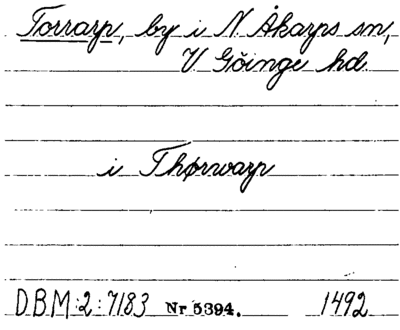 Torrarp, by i N. Åkarps sn,
V Göinge hd.
i Thørwarp
D.B.M:2:7183 Nr 5394. 1492